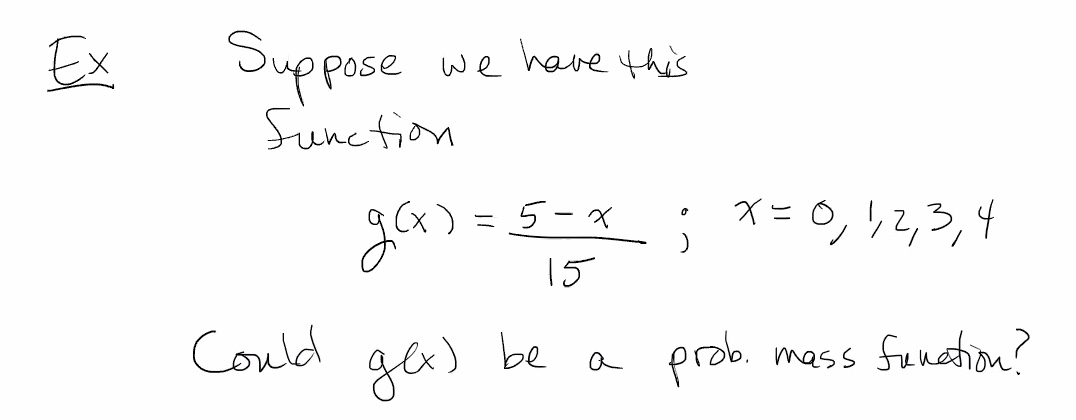 Ex Suppose we have this
function
g(x) = 5 - x / 15 ; x = 0, 1, 2, 3, 4
Could g(x) be a prob. mass function?